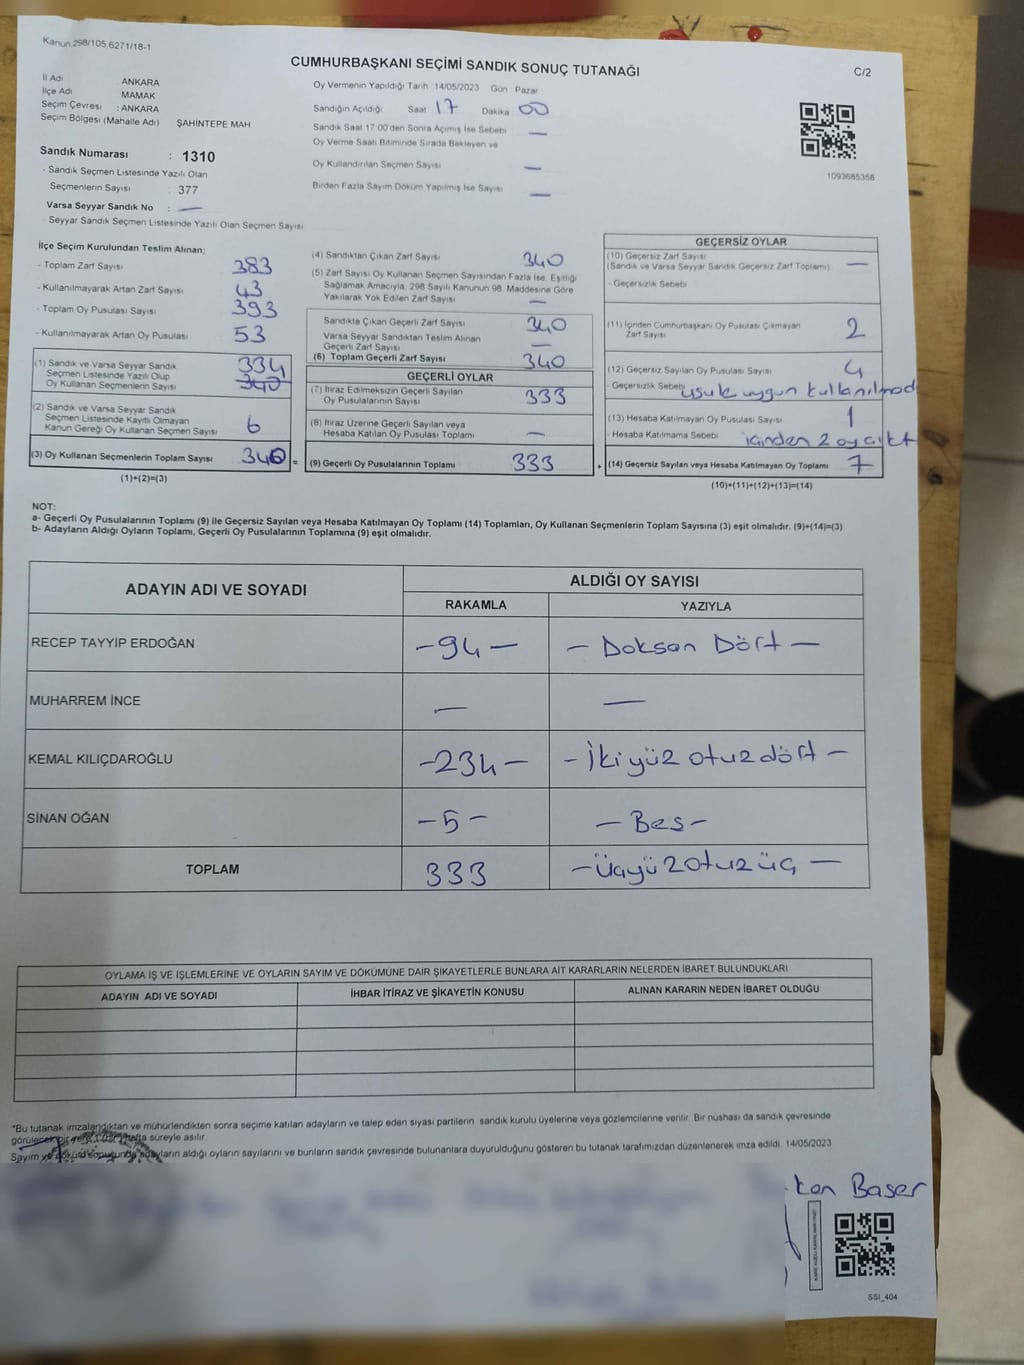 Kanun,298/105,6271/18-1
CUMHURBAŞKANI SEÇİMİ SANDIK SONUÇ TUTANAĞI
C/2
İl Adı ANKARA
İlçe Adı MAMAK
Seçim Çevresi : ANKARA
Seçim Bölgesi (Mahalle Adı) ŞAHİNTEPE MAH
Oy Vermenin Yapıldığı Tarih 14/05/2023 Gün Pazar
Sandığın Açıldığı Saat 17 Dakika 00
Sandık Saat 17:00'den Sonra Açımış İse Sebebi —
Oy Verme Saati Bitiminde Sırada Bekleyen ve
Oy Kullandırılan Seçmen Sayısı —
Birden Fazla Sayım Döküm Yapılmış İse Sayısı —
1093685358
Sandık Numarası : 1310
- Sandık Seçmen Listesinde Yazılı Olan
Seçmenlerin Sayısı : 377
Varsa Seyyar Sandık No : —
- Seyyar Sandık Seçmen Listesinde Yazılı Olan Seçmen Sayısı
İlçe Seçim Kurulundan Teslim Alınan;
- Toplam Zarf Sayısı 383
- Kullanılmayarak Artan Zarf Sayısı 43
- Toplam Oy Pusulası Sayısı 393
- Kullanılmayarak Artan Oy Pusulası 53
(1) Sandık ve Varsa Seyyar Sandık
Seçmen Listesinde Yazılı Olup
Oy Kullanan Seçmenlerin Sayısı 334 340
(2) Sandık ve Varsa Seyyar Sandık
Seçmen Listesinde Kayıtlı Olmayan
Kanun Gereği Oy Kullanan Seçmen Sayısı 6
(3) Oy Kullanan Seçmenlerin Toplam Sayısı 340 =
(1)+(2)=(3)
(4) Sandıktan Çıkan Zarf Sayısı 340
(5) Zarf Sayısı Oy Kullanan Seçmen Sayısından Fazla İse, Eşitliği
Sağlamak Amacıyla, 298 Sayılı Kanunun 98. Maddesine Göre
Yakılarak Yok Edilen Zarf Sayısı —
Sandıkta Çıkan Geçerli Zarf Sayısı 340
Varsa Seyyar Sandıktan Teslim Alınan
Geçerli Zarf Sayısı —
(6) Toplam Geçerli Zarf Sayısı 340
GEÇERLİ OYLAR
(7) İtiraz Edilmeksizin Geçerli Sayılan
Oy Pusulalarının Sayısı 333
(8) İtiraz Üzerine Geçerli Sayılan veya
Hesaba Katılan Oy Pusulası Toplamı —
(9) Geçerli Oy Pusulalarının Toplamı 333 +
GEÇERSİZ OYLAR
(10) Geçersiz Zarf Sayısı
(Sandık ve Varsa Seyyar Sandık Geçersiz Zarf Toplamı) —
- Geçersizlik Sebebi
(11) İçinden Cumhurbaşkanı Oy Pusulası Çıkmayan
Zarf Sayısı 2
(12) Geçersiz Sayılan Oy Pusulası Sayısı 4
- Geçersizlik Sebebi usule uygun kullanılmad
(13) Hesaba Katılmayan Oy Pusulası Sayısı 1
- Hesaba Katılmama Sebebi içinden 2 oy çıktı
(14) Geçersiz Sayılan veya Hesaba Katılmayan Oy Toplamı 7
(10)+(11)+(12)+(13)=(14)
NOT:
a- Geçerli Oy Pusulalarının Toplamı (9) ile Geçersiz Sayılan veya Hesaba Katılmayan Oy Toplamı (14) Toplamları, Oy Kullanan Seçmenlerin Toplam Sayısına (3) eşit olmalıdır. (9)+(14)=(3)
b- Adayların Aldığı Oyların Toplamı, Geçerli Oy Pusulalarının Toplamına (9) eşit olmalıdır.
ADAYIN ADI VE SOYADI ALDIĞI OY SAYISI
RAKAMLA YAZIYLA
RECEP TAYYİP ERDOĞAN -94- - Doksan Dört -
MUHARREM İNCE — —
KEMAL KILIÇDAROĞLU -234- - İkiyüz otuzdört -
SİNAN OĞAN -5- - Beş -
TOPLAM 333 - Üçyüzotuzüç -
OYLAMA İŞ VE İŞLEMLERİNE VE OYLARIN SAYIM VE DÖKÜMÜNE DAİR ŞİKAYETLERLE BUNLARA AİT KARARLARIN NELERDEN İBARET BULUNDUKLARI
ADAYIN ADI VE SOYADI İHBAR İTİRAZ VE ŞİKAYETİN KONUSU ALINAN KARARIN NEDEN İBARET OLDUĞU
*Bu tutanak imzalandıktan ve mühürlendikten sonra seçime katılan adayların ve talep eden siyasi partilerin sandık kurulu üyelerine veya gözlemcilerine verilir. Bir nüshası da sandık çevresinde
görülecek bir yere 1 hafta süreyle asılır.
Sayım ve dökümü sonucunda adayların aldığı oyların sayılarını ve bunların sandık çevresinde bulunanlara duyurulduğunu gösteren bu tutanak tarafımızdan düzenlenerek imza edildi. 14/05/2023
kan Başer
SSI_404